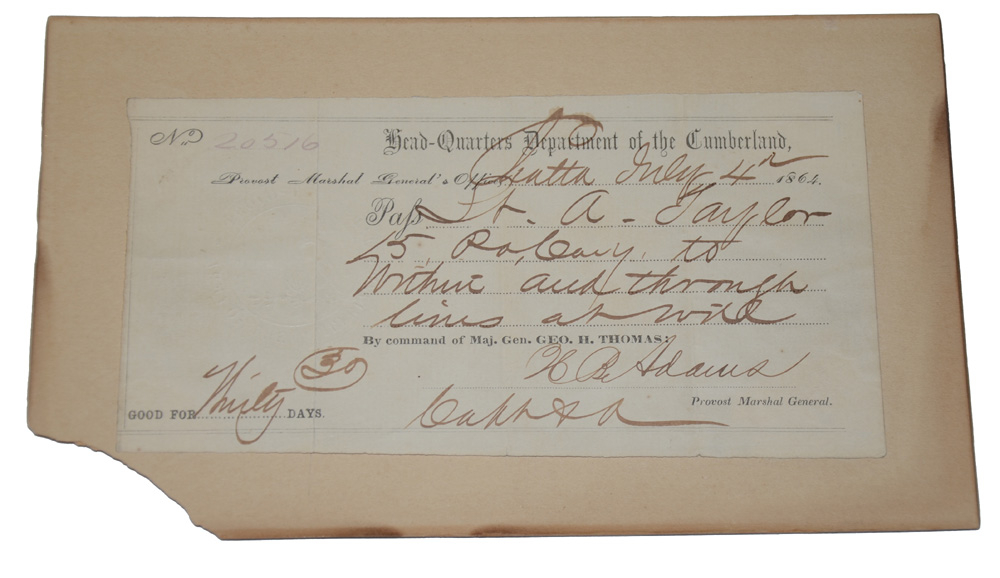 No 20516
Head-Quarters Department of the Cumberland,
Provost Marshal General's Office, Chatta July 4th 1864.
Pass Lt. A. Taylor
15, Pa, Cavy. to
Within and through
lines at will
By command of Maj. Gen. GEO. H. THOMAS:
Adams
Provost Marshal General.
Capt
30
GOOD FOR Thirty DAYS.